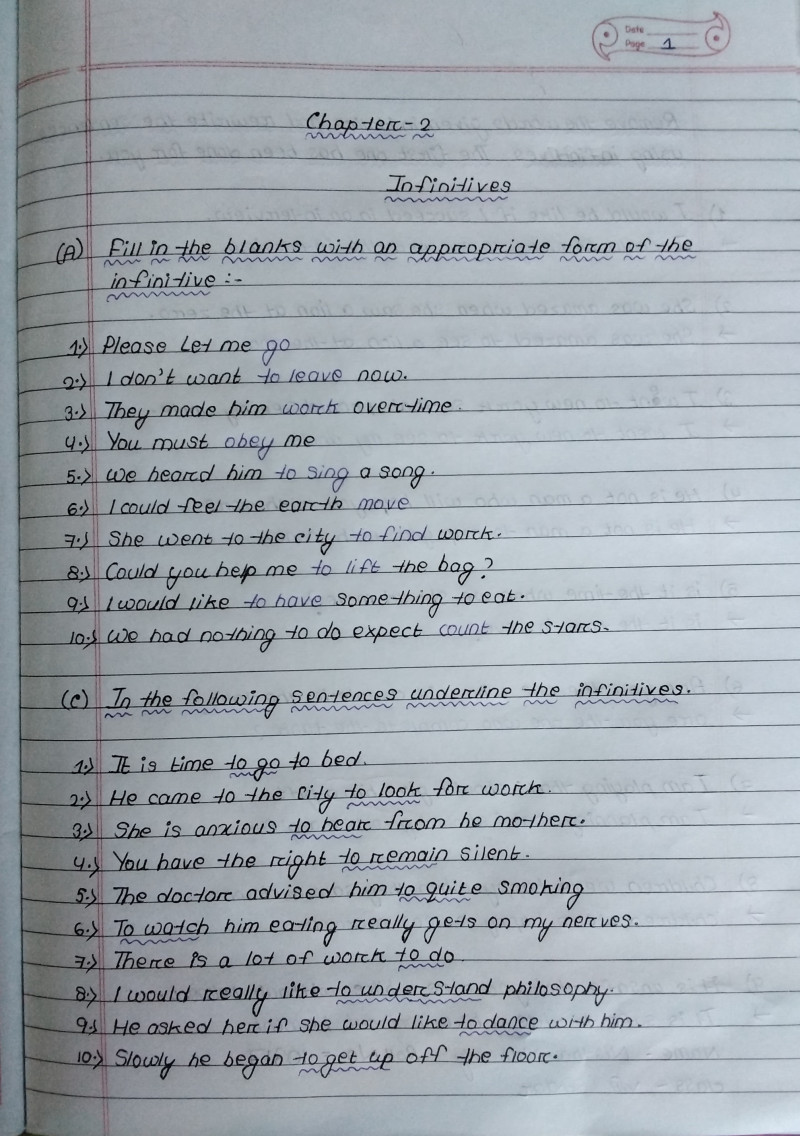 Date
Page 1
Chapter-2
Infinitives
(A) Fill in the blanks with an appropriate form of the
infinitive :-
1.) Please Let me go
2.) I don't want to leave now.
3.) They made him work overtime.
4.) You must obey me
5.) We heard him to sing a song.
6.) I could feel the earth move
7.) She went to the city to find work.
8.) Could you help me to lift the bag?
9.) I would like to have something to eat.
10.) We had nothing to do expect count the stars.
(C) In the following sentences underline the infinitives.
1.) It is time to go to bed.
2.) He came to the city to look for work.
3.) She is anxious to hear from he mother.
4.) You have the right to remain silent.
5.) The doctor advised him to quite smoking
6.) To watch him eating really gets on my nerves.
7.) There is a lot of work to do.
8.) I would really like to understand philosophy.
9.) He asked her if she would like to dance with him.
10.) Slowly he began to get up off the floor.